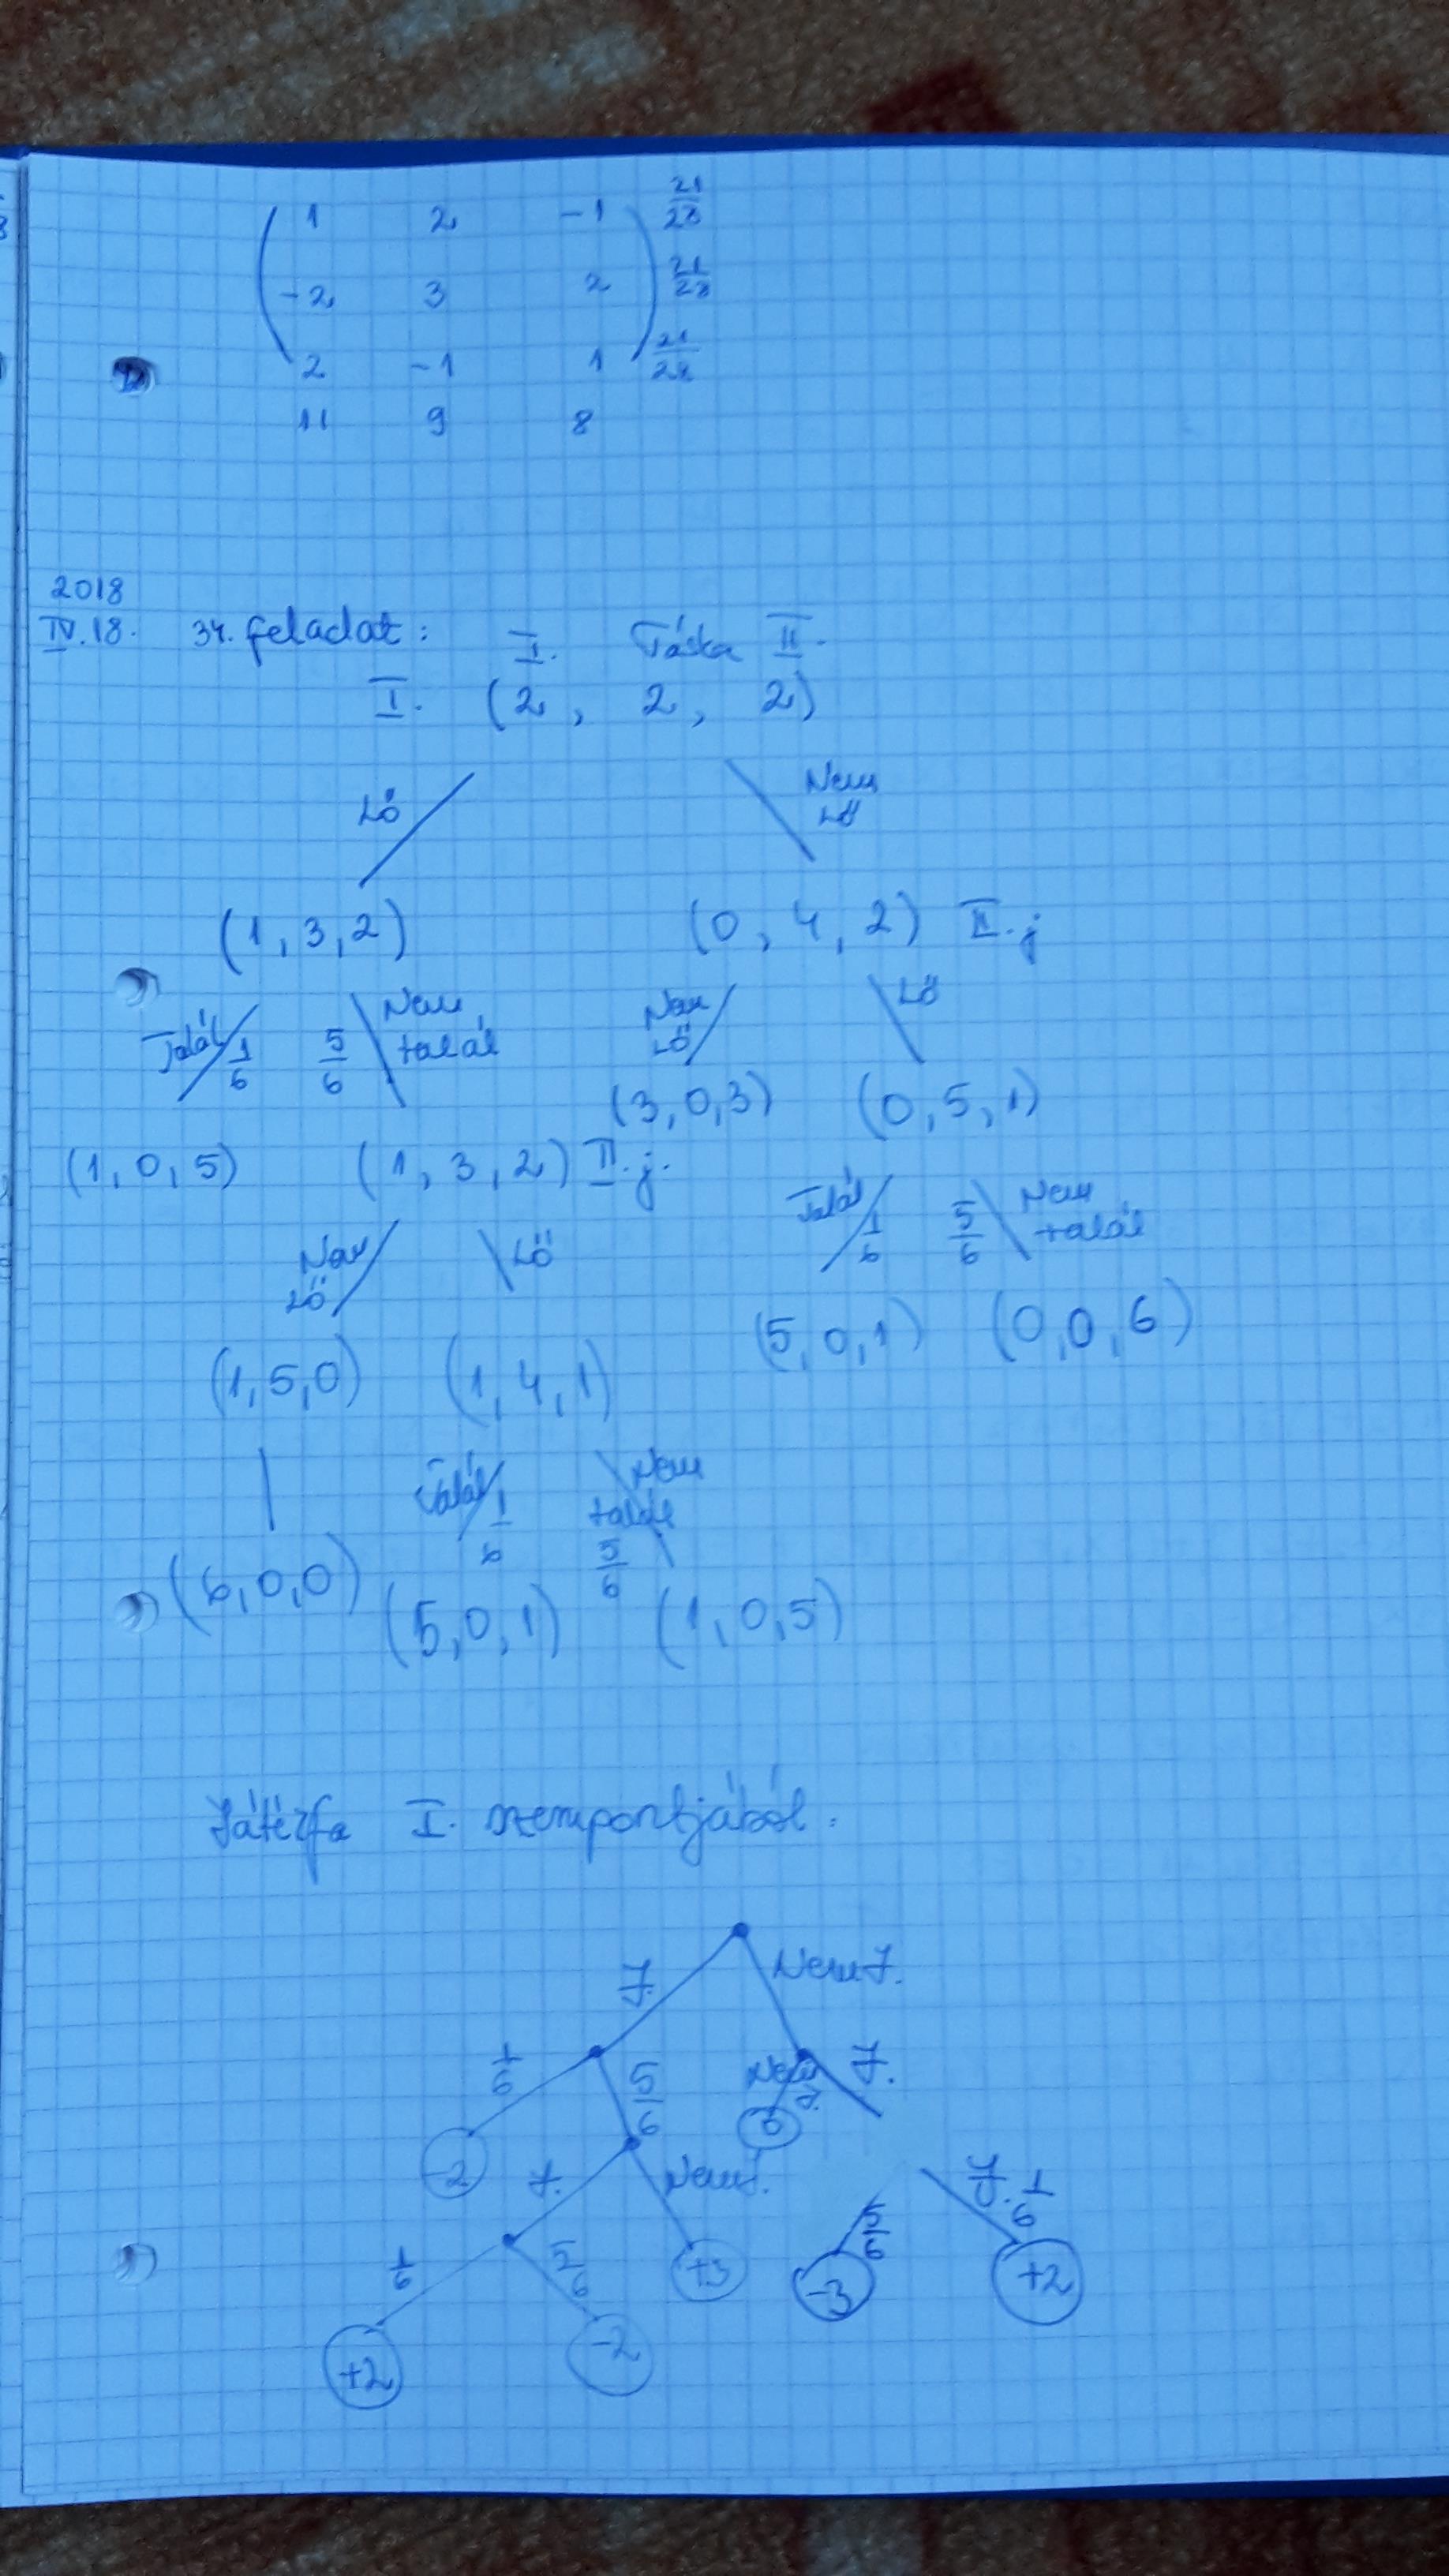 1 2 -1 21/28
-2 3 2 21/28
2 -1 1 21/28
11 9 8
2018
IV.18. 34. feladat: I. Táska II.
I. (2, 2, 2)
Lő Nem Lő
(1, 3, 2) (0, 4, 2) II. j
Talál 1/6 5/6 Nem talál Nem Lő Lő
(3,0,3) (0,5,1)
(1,0,5) (1,3,2) II. j.
Talál 1/6 5/6 Nem talál
Nem Lő Lő
(5,0,1) (0,0,6)
(1,5,0) (1,4,1)
Talál 1/6 Nem talál 5/6
(6,0,0) (5,0,1) (1,0,5)
Játékfa I. szempontjából:
J. Nem J.
1/6 5/6 Nem J. J.
-2 J. Nem J. 0
5/6 J. 1/6
1/6 5/6 +3 -3 +2
+2 -2